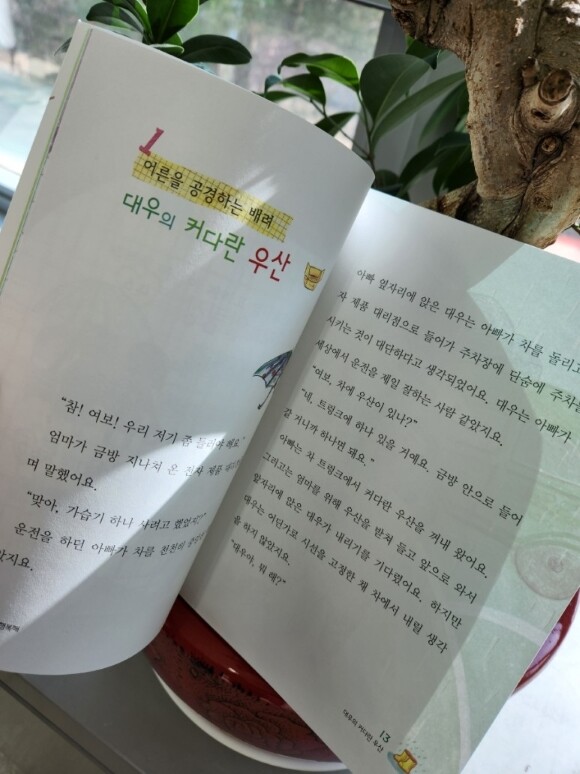 1
어른을 공경하는 배려
대우의 커다란 우산
"참! 여보! 우리 저기 좀 들러야 해요."
엄마가 금방 지나쳐 온 전자 제품
며 말했어요.
"맞아, 가습기 하나 사려고 했었지?"
운전을 하던 아빠가 차를 천천히
았지요.
아빠 옆자리에 앉은 대우는 아빠가 차를 돌리고
자 제품 대리점으로 들어가 주차장에 단숨에 주차
시키는 것이 대단하다고 생각되었어요. 대우는 아빠가
세상에서 운전을 제일 잘하는 사람 같았지요.
"여보, 차에 우산이 있나?"
"네, 트렁크에 하나 있을 거예요. 금방 안으로 들어
갈 거니까 하나면 돼요."
아빠는 차 트렁크에서 커다란 우산을 꺼내 왔어요.
그리고는 엄마를 위해 우산을 받쳐 들고 앞으로 와서
앞자리에 앉은 대우가 내리기를 기다렸어요. 하지만
대우는 어딘가로 시선을 고정한 채 차에서 내릴 생각
을 하지 않았지요.
"대우야, 뭐 해?"
대우의 커다란 우산
13